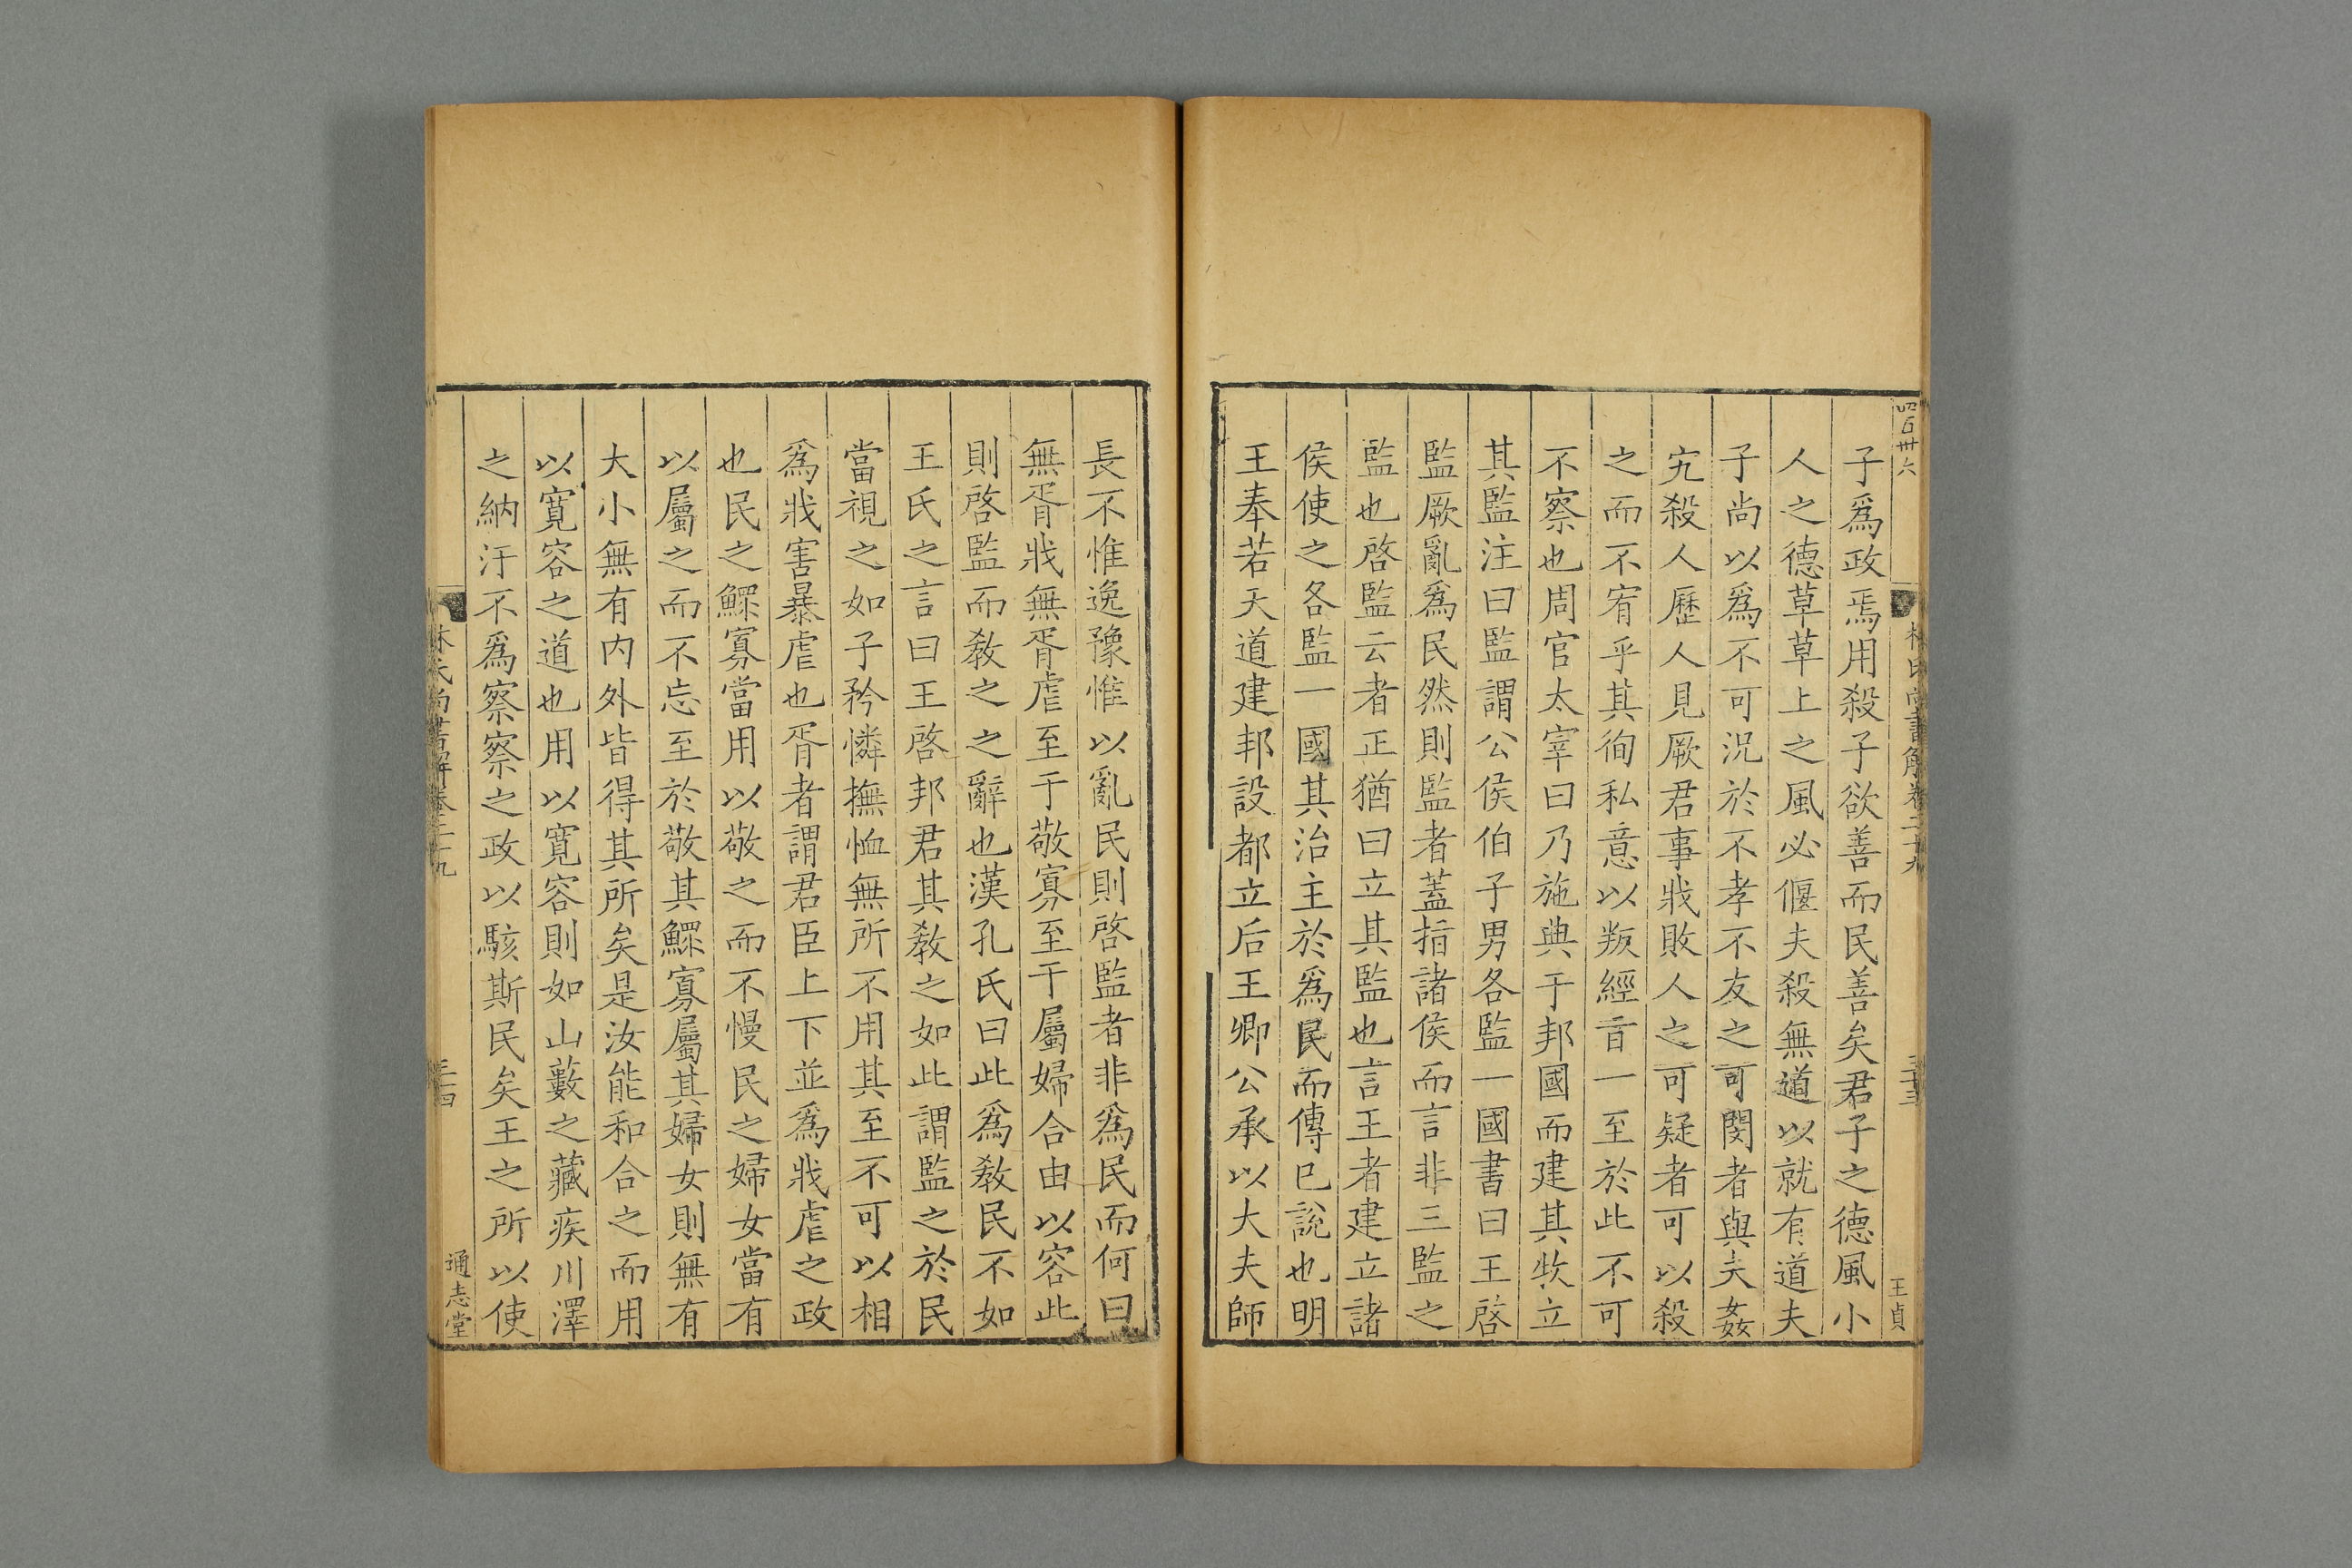 四百卅六
林氏尚書解卷二十九
三十三
王貞
子爲政焉用殺子欲善而民善矣君子之德風小
人之德草草上之風必偃夫殺無道以就有道夫
子尚以爲不可況於不孝不友之可閔者與夫姦
宄殺人歷人見厥君事戕敗人之可疑者可以殺
之而不宥乎其徇私意以叛經旨一至於此不可
不察也周官太宰曰乃施典于邦國而建其牧立
其監注曰監謂公侯伯子男各監一國書曰王啓
監厥亂爲民然則監者蓋指諸侯而言非三監之
監也啓監云者正猶曰立其監也言王者建立諸
侯使之各監一國其治主於爲民而傳已說也明
王奉若天道建邦設都立后王卿公承以大夫師
長不惟逸豫惟以亂民則啓監者非爲民而何曰
無胥戕無胥虐至于敬寡至于屬婦合由以容此
則啓監而教之之辭也漢孔氏曰此爲教民不如
王氏之言曰王啓邦君其教之如此謂監之於民
當視之如子矜憐撫恤無所不用其至不可以相
爲戕害暴虐也胥者謂君臣上下並爲戕虐之政
也民之鰥寡當用以敬之而不慢民之婦女當有
以屬之而不忘至於敬其鰥寡屬其婦女則無有
大小無有内外皆得其所矣是汝能和合之而用
以寛容之道也用以寛容則如山藪之藏疾川澤
之納汙不爲察察之政以駭斯民矣王之所以使
林氏尚書解卷二十九
三十四
通志堂